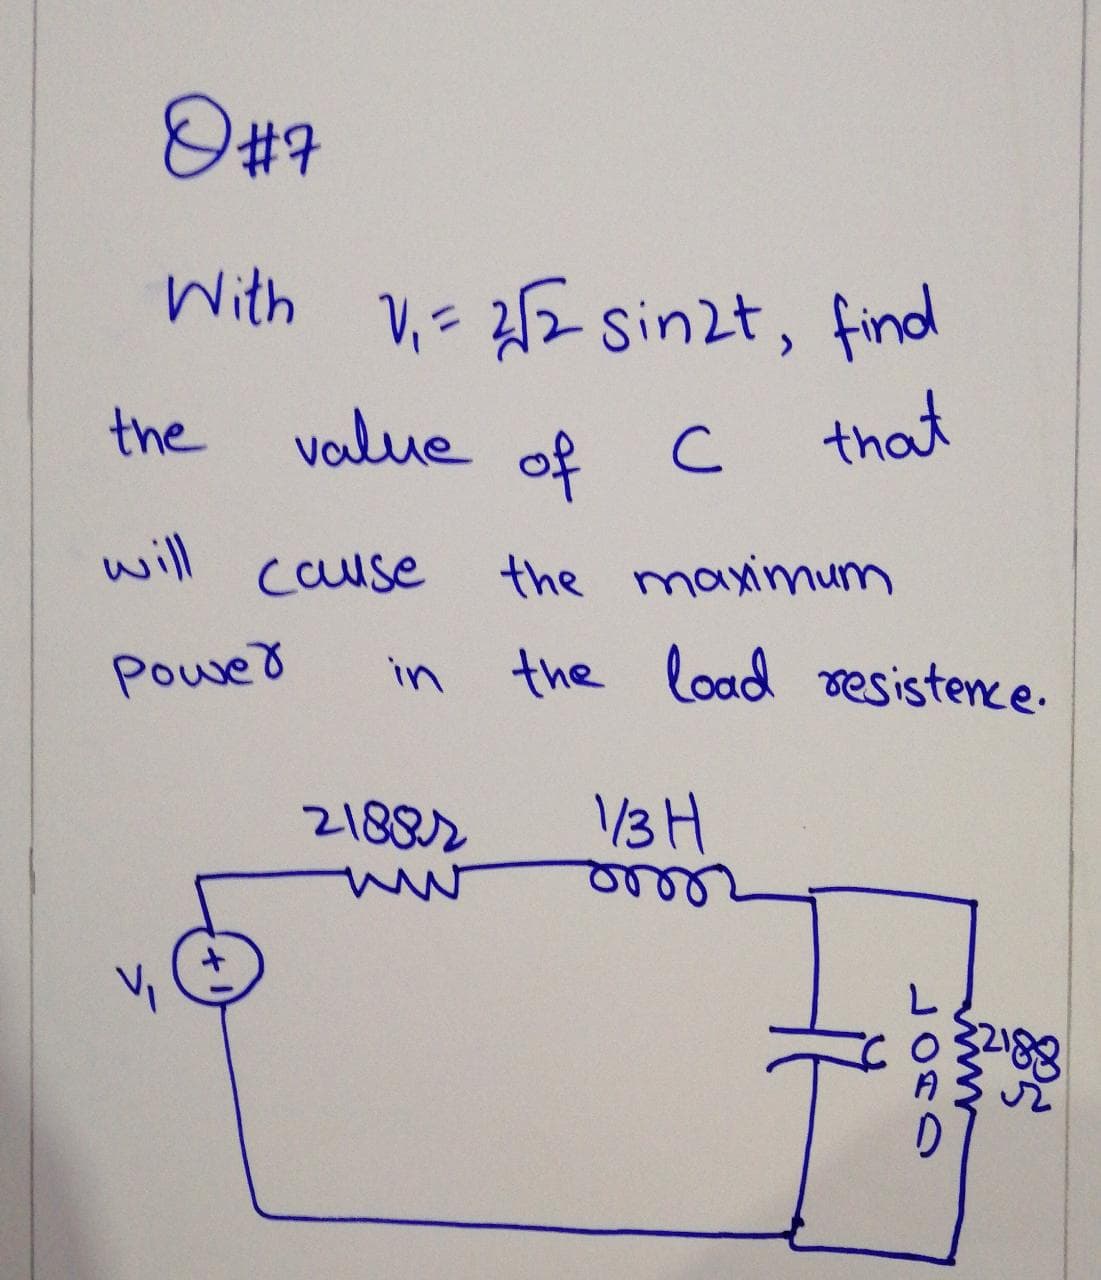 Q#7
With V₁ = 2√2 sin2t, find
the value of C that
will cause the maximum
power in the load resistence.
2188Ω 1/3 H
V₁ + -
C LOAD 2188 Ω